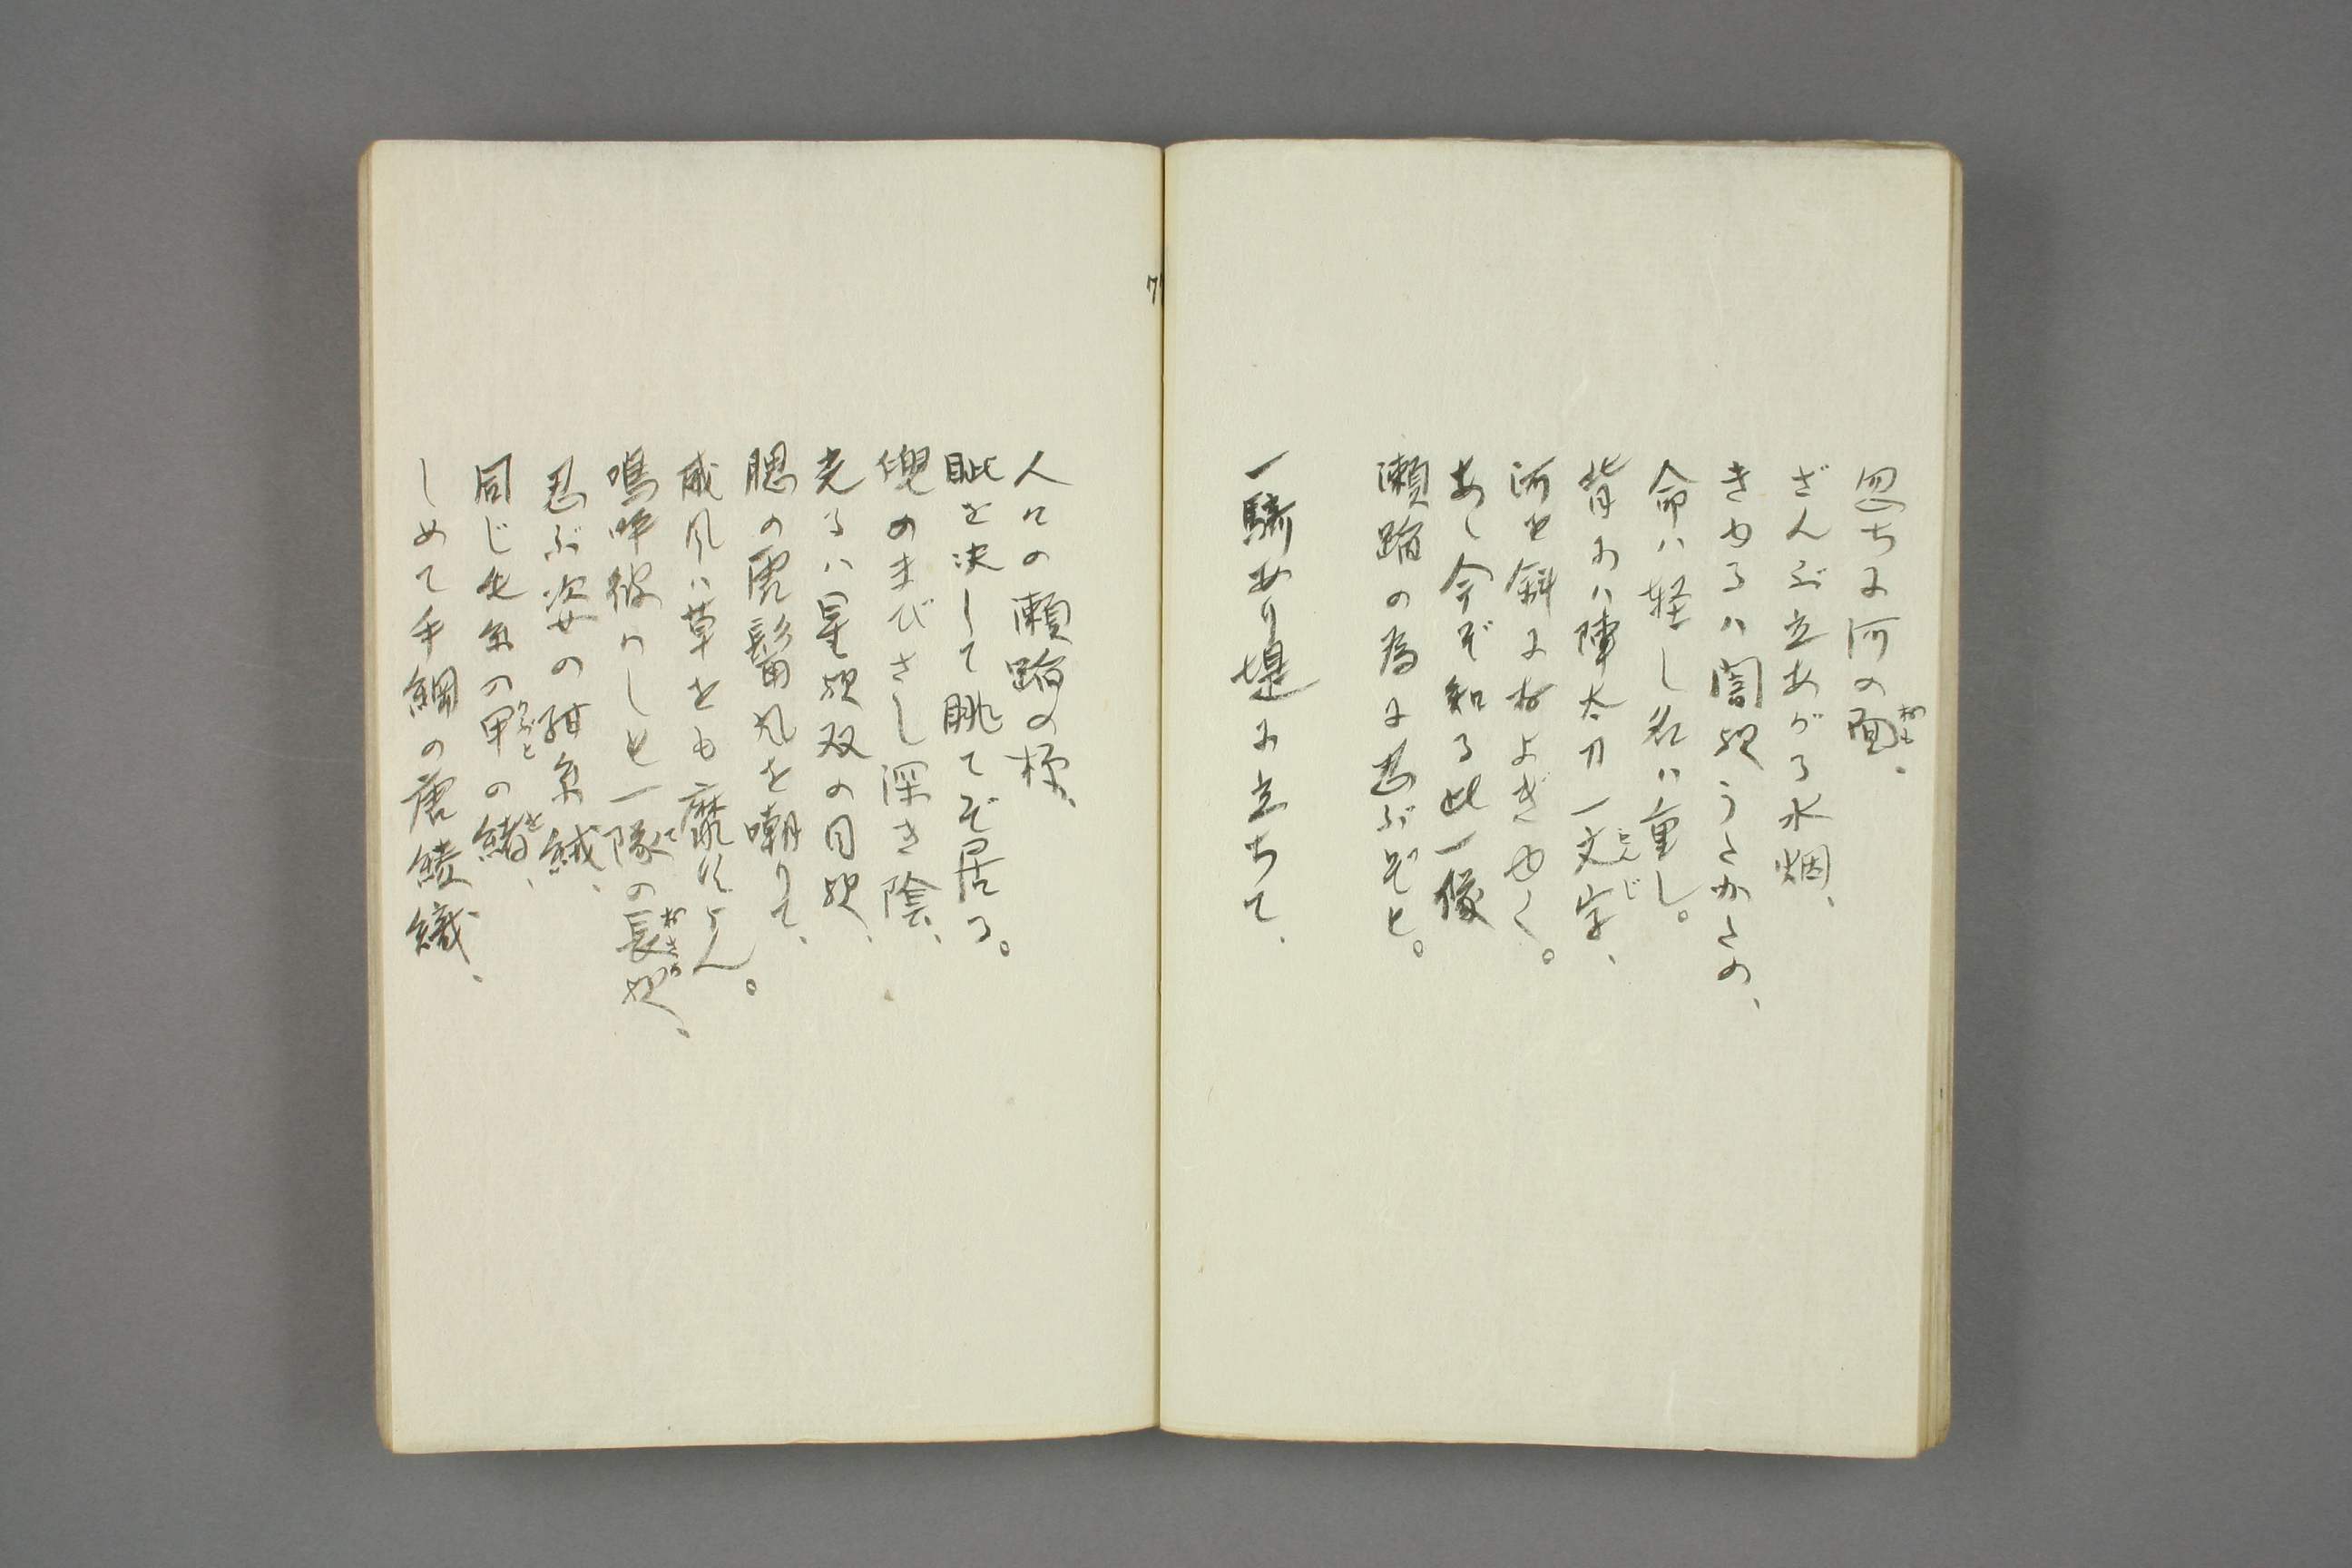 忽ちに河の面、
ざんぶ立あがる水烟、
きゆるは闇歟うたかたの、
命は軽し名は重し。
背には陣太刀一文字、
河を斜におよぎゆく。
あゝ今ぞ知る此一俊
瀬踏の為に忍ぶぞと。
一騎あり堤に立ちて、
人々の瀬踏の様、
眦を決して眺てぞ居る。
兜のまびさし深き陰、
光るは星歟双の目歟、
腮の虎髯丸を嘲りて、
威風は草をも靡けん。
嗚呼彼はしも一隊の長歟、
忍ぶ姿の紺糸縅、
同じ毛糸の甲の緒、
しめて手綱の唐綾織、